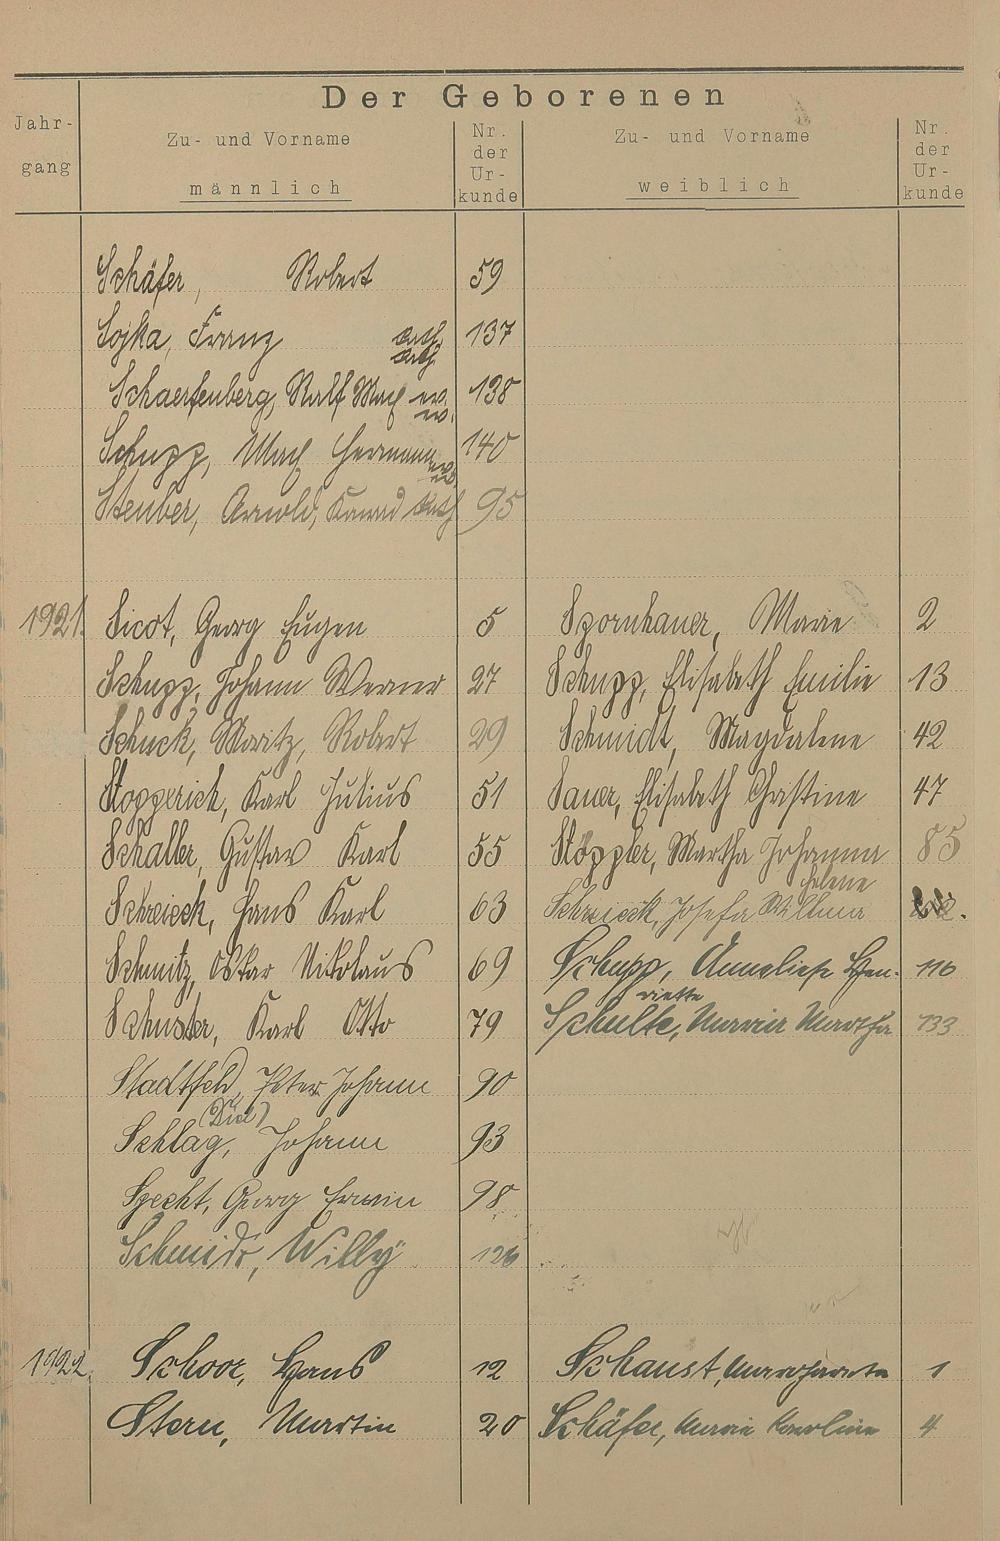 Der Geborenen
Jahr-
gang
Zu- und Vorname
männlich
Nr.
der
Ur-
kunde
Zu- und Vorname
weiblich
Nr.
der
Ur-
kunde
Schäfer, Robert 59
Sojka, Franz kath. 137
kath.
Schaerfenberg, Ralf Max ev. 138
ev.
Schupp, Max Hermann ev. 140
ev.
Steuber, Arnold, Konrad kath 95
1921. Sicot, Georg Eugen 5 Spornhauer, Marie 2
Schupp, Johann Werner 27 Schupp, Elisabeth Emilie 13
Schuck, Moritz, Robert 29 Schmidt, Magdalene 42
Stoppերich, Karl Julius 51 Sauer, Elisabeth Christine 47
Schaller, Gustav Karl 55 Stöppler, Martha Johanna 85
Helene
Schreieck, Hans Karl 63 Schreieck, Josefa Wilhma
Schmitz, Oskar Nikolaus 69 Schupp, Anneliese Hen- 116
riette
Schuster, Karl Otto 79 Schulte, Maria Martha 133
Stadtfeld, Peter Johann 90
(Diel)
Schlag, Johann 93
Specht, Georg Erwin 98
Schmidt, Willy 126
1922. Schoor, Hans 12 Schaust, Margareta 1
Stern, Martin 20 Schäfer, Maria Karoline 4